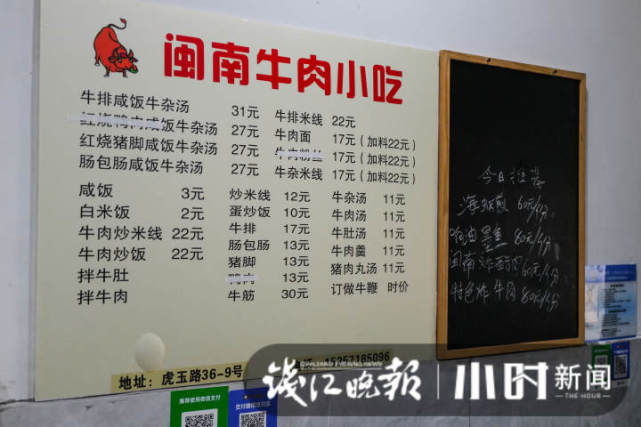 闽南牛肉小吃
牛排咸饭牛杂汤 31元
红烧鸭肉咸饭牛杂汤 27元
红烧猪脚咸饭牛杂汤 27元
肠包肠咸饭牛杂汤 27元
牛排米线 22元
牛肉面 17元（加料22元）
牛肉粉丝 17元（加料22元）
牛杂米线 17元（加料22元）
咸饭 3元
白米饭 2元
牛肉炒米线 22元
牛肉炒饭 22元
拌牛肚
拌牛肉
炒米线 12元
蛋炒饭 10元
牛排 17元
肠包肠 13元
猪脚 13元
鸭肉 13元
牛筋 30元
牛杂汤 11元
牛肉汤 11元
牛肚汤 11元
牛肉羹 11元
猪肉丸汤 11元
订做牛鞭 时价
地址：虎玉路36-9号
15257185096
今日
海蛎煎 60元/份
80元/份
闽南炸五香肉 60元/份
特色炸牛肉 80元/份
推荐使用微信支付
钱江晚报
QIANJIANG EVENING NEWS
小时新闻
THE HOUR